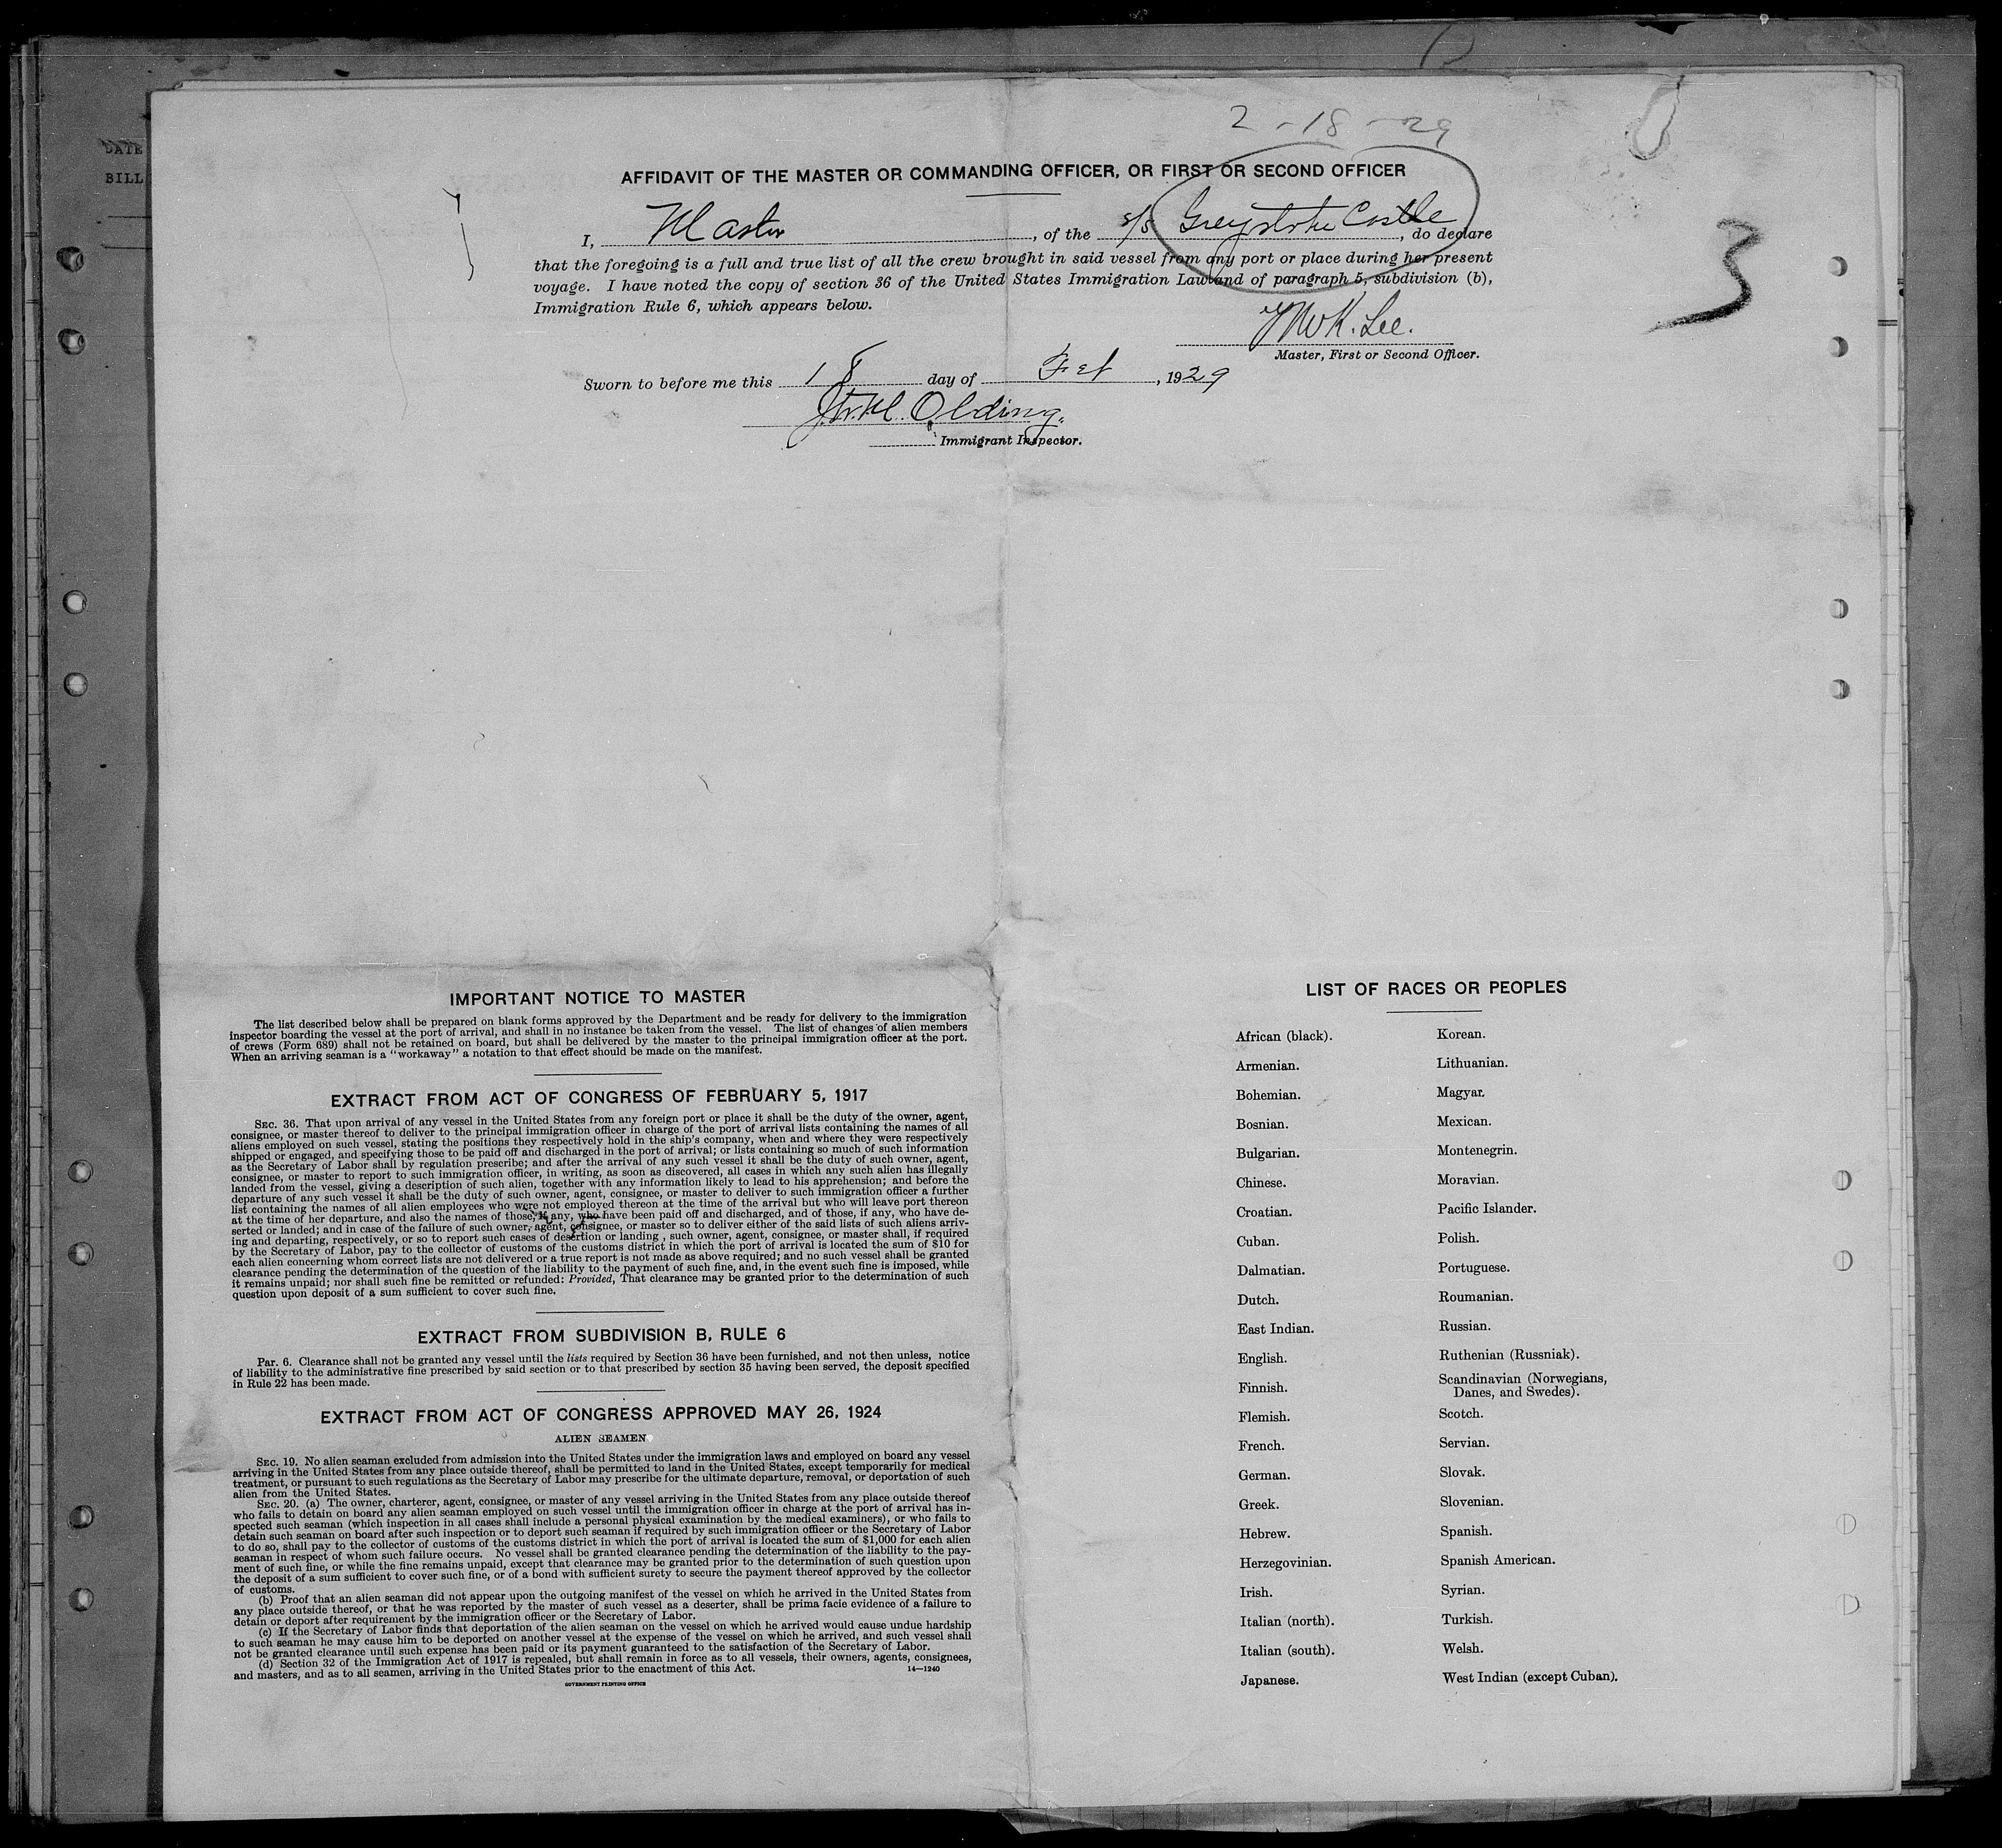 DATE
BILL
2-18-29
AFFIDAVIT OF THE MASTER OR COMMANDING OFFICER, OR FIRST OR SECOND OFFICER
I, Master, of the s/s Greystoke Castle, do declare
that the foregoing is a full and true list of all the crew brought in said vessel from any port or place during her present
voyage. I have noted the copy of section 36 of the United States Immigration Law and of paragraph 5, subdivision (b),
Immigration Rule 6, which appears below.
3
Lee.
Master, First or Second Officer.
Sworn to before me this 18 day of Feb, 1929
Olding
Immigrant Inspector.
IMPORTANT NOTICE TO MASTER
The list described below shall be prepared on blank forms approved by the Department and be ready for delivery to the immigration
inspector boarding the vessel at the port of arrival, and shall in no instance be taken from the vessel. The list of changes of alien members
of crews (Form 689) shall not be retained on board, but shall be delivered by the master to the principal immigration officer at the port.
When an arriving seaman is a "workaway" a notation to that effect should be made on the manifest.
EXTRACT FROM ACT OF CONGRESS OF FEBRUARY 5, 1917
SEC. 36. That upon arrival of any vessel in the United States from any foreign port or place it shall be the duty of the owner, agent,
consignee, or master thereof to deliver to the principal immigration officer in charge of the port of arrival lists containing the names of all
aliens employed on such vessel, stating the positions they respectively hold in the ship's company, when and where they were respectively
shipped or engaged, and specifying those to be paid off and discharged in the port of arrival; or lists containing so much of such information
as the Secretary of Labor shall by regulation prescribe; and after the arrival of any such vessel it shall be the duty of such owner, agent,
consignee, or master to report to such immigration officer, in writing, as soon as discovered, all cases in which any such alien has illegally
landed from the vessel, giving a description of such alien, together with any information likely to lead to his apprehension; and before the
departure of any such vessel it shall be the duty of such owner, agent, consignee, or master to deliver to such immigration officer a further
list containing the names of all alien employees who were not employed thereon at the time of the arrival but who will leave port thereon
at the time of her departure, and also the names of those, if any, who have been paid off and discharged, and of those, if any, who have de-
serted or landed; and in case of the failure of such owner, agent, consignee, or master so to deliver either of the said lists of such aliens arriv-
ing and departing, respectively, or so to report such cases of desertion or landing , such owner, agent, consignee, or master shall, if required
by the Secretary of Labor, pay to the collector of customs of the customs district in which the port of arrival is located the sum of $10 for
each alien concerning whom correct lists are not delivered or a true report is not made as above required; and no such vessel shall be granted
clearance pending the determination of the question of the liability to the payment of such fine, and, in the event such fine is imposed, while
it remains unpaid; nor shall such fine be remitted or refunded: Provided, That clearance may be granted prior to the determination of such
question upon deposit of a sum sufficient to cover such fine.
EXTRACT FROM SUBDIVISION B, RULE 6
Par. 6. Clearance shall not be granted any vessel until the lists required by Section 36 have been furnished, and not then unless, notice
of liability to the administrative fine prescribed by said section or to that prescribed by section 35 having been served, the deposit specified
in Rule 22 has been made.
EXTRACT FROM ACT OF CONGRESS APPROVED MAY 26, 1924
ALIEN SEAMEN
SEC. 19. No alien seaman excluded from admission into the United States under the immigration laws and employed on board any vessel
arriving in the United States from any place outside thereof, shall be permitted to land in the United States, except temporarily for medical
treatment, or pursuant to such regulations as the Secretary of Labor may prescribe for the ultimate departure, removal, or deportation of such
alien from the United States.
SEC. 20. (a) The owner, charterer, agent, consignee, or master of any vessel arriving in the United States from any place outside thereof
who fails to detain on board any alien seaman employed on such vessel until the immigration officer in charge at the port of arrival has in-
spected such seaman (which inspection in all cases shall include a personal physical examination by the medical examiners), or who fails to
detain such seaman on board after such inspection or to deport such seaman if required by such immigration officer or the Secretary of Labor
to do so, shall pay to the collector of customs of the customs district in which the port of arrival is located the sum of $1,000 for each alien
seaman in respect of whom such failure occurs. No vessel shall be granted clearance pending the determination of the liability to the pay-
ment of such fine, or while the fine remains unpaid, except that clearance may be granted prior to the determination of such question upon
the deposit of a sum sufficient to cover such fine, or of a bond with sufficient surety to secure the payment thereof approved by the collector
of customs.
(b) Proof that an alien seaman did not appear upon the outgoing manifest of the vessel on which he arrived in the United States from
any place outside thereof, or that he was reported by the master of such vessel as a deserter, shall be prima facie evidence of a failure to
detain or deport after requirement by the immigration officer or the Secretary of Labor.
(c) If the Secretary of Labor finds that deportation of the alien seaman on the vessel on which he arrived would cause undue hardship
to such seaman he may cause him to be deported on another vessel at the expense of the vessel on which he arrived, and such vessel shall
not be granted clearance until such expense has been paid or its payment guaranteed to the satisfaction of the Secretary of Labor.
(d) Section 32 of the Immigration Act of 1917 is repealed, but shall remain in force as to all vessels, their owners, agents, consignees,
and masters, and as to all seamen, arriving in the United States prior to the enactment of this Act. 14—1240
GOVERNMENT PRINTING OFFICE
LIST OF RACES OR PEOPLES
African (black).
Armenian.
Bohemian.
Bosnian.
Bulgarian.
Chinese.
Croatian.
Cuban.
Dalmatian.
Dutch.
East Indian.
English.
Finnish.
Flemish.
French.
German.
Greek.
Hebrew.
Herzegovinian.
Irish.
Italian (north).
Italian (south).
Japanese.
Korean.
Lithuanian.
Magyar.
Mexican.
Montenegrin.
Moravian.
Pacific Islander.
Polish.
Portuguese.
Roumanian.
Russian.
Ruthenian (Russniak).
Scandinavian (Norwegians,
Danes, and Swedes).
Scotch.
Servian.
Slovak.
Slovenian.
Spanish.
Spanish American.
Syrian.
Turkish.
Welsh.
West Indian (except Cuban).